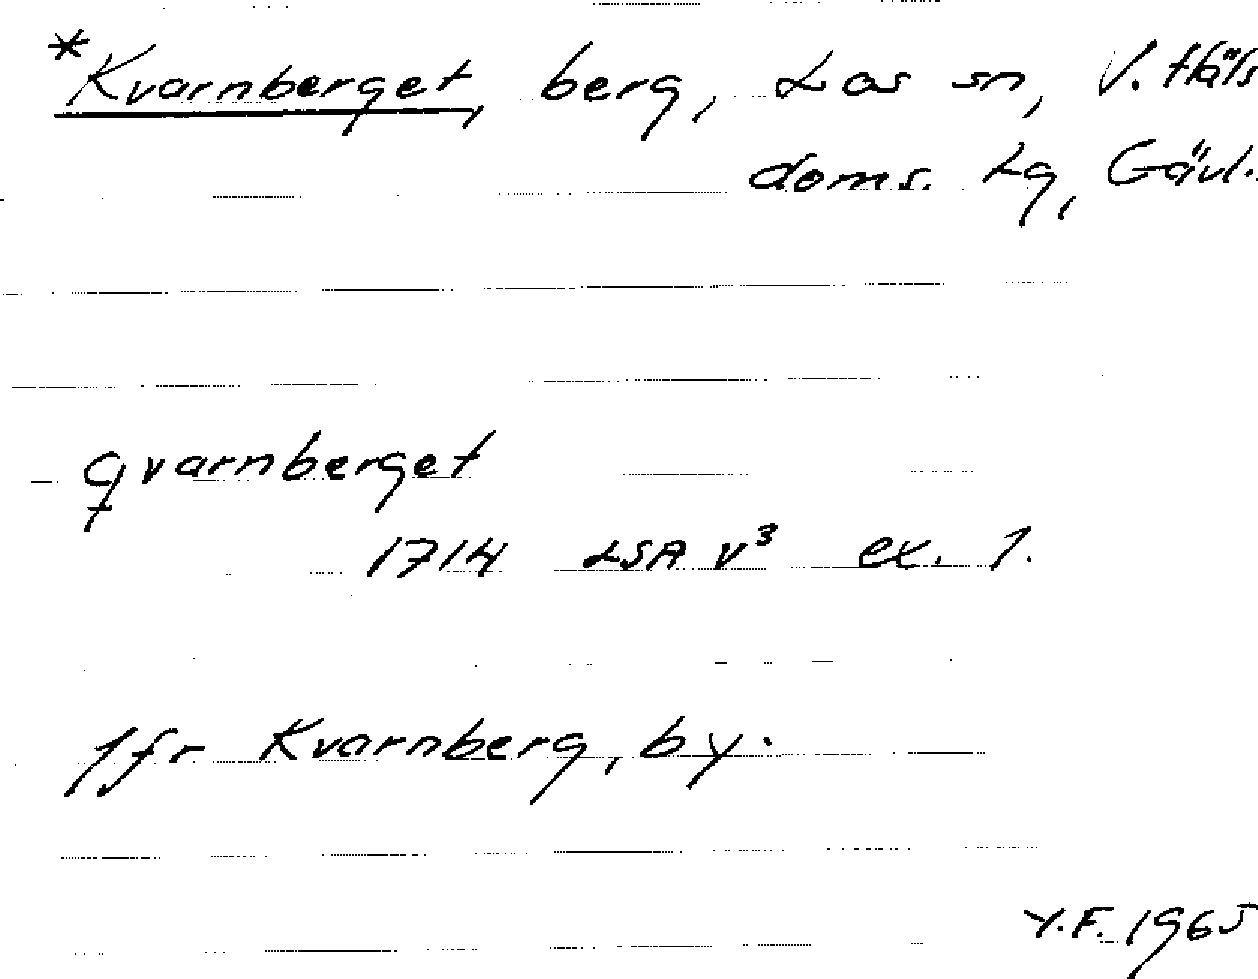 *Kvarnberget, berg, Los sn, V. Häls
doms. Lg, Gävl.
qvarnberget
1714 LSA V³ ex. 1.
Jfr Kvarnberg, by.
Y.F. 1965